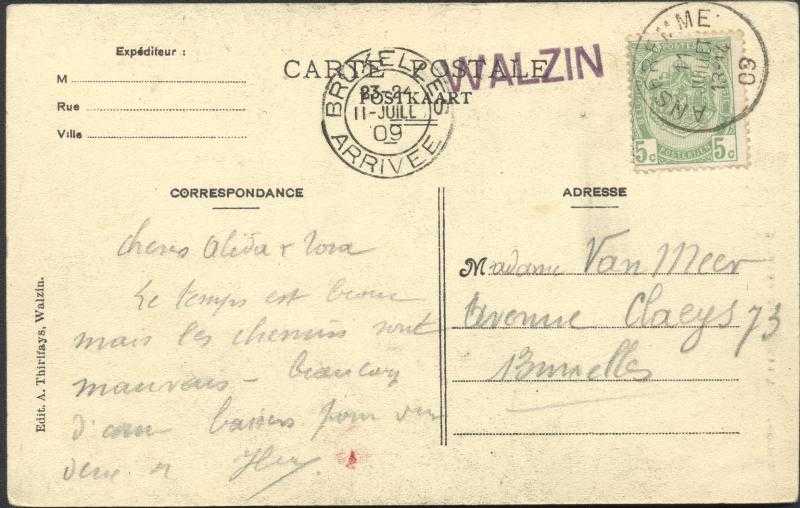 Expéditeur :
M
Rue
Ville
CARTE POSTALE
POSTKAART
WALZIN
BRUXELLES
23-24
11-JUILL
09
ARRIVÉE
JUILLET
09
5c 5c
CORRESPONDANCE
ADRESSE
Edit. A. Thirifays, Walzin.
chères Alida & Nora
Le temps est beau
mais les chemins sont
mauvais - beaucoup
baisers pour
Madame Van Meer
Avenue Claeys 73
Bruxelles